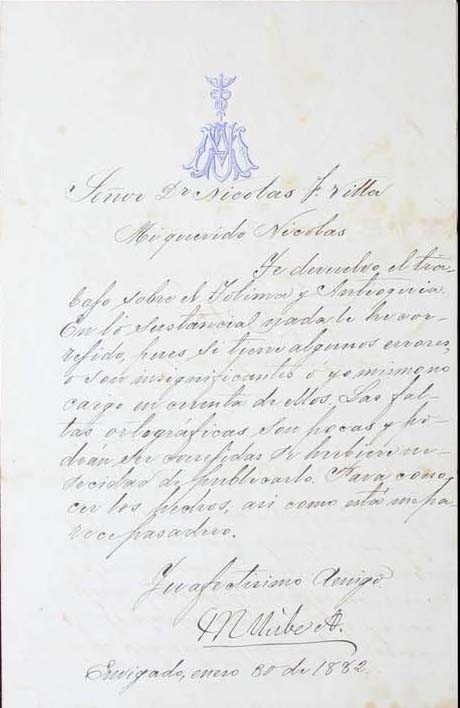 Señor Dr Nicolas F. Villa
Mi querido Nicolas
Te devuelvo el tra-
bajo sobre el Tolima y Antioquia.
En lo sustancial nada le he cor-
rejido, pues si tiene algunos errores,
o son insignificantes o yo mismo no
caigo en cuenta de ellos. Las fal-
tas ortográficas son pocas y po-
drán ser correjidas si hubiere ne-
cecidad de publicarlo. Para cono-
cer los hechos, asi como está me pa-
rece pasadero.
Tu afectisimo Amigo
M Uribe A.
Envigado, enero 30 de 1882.